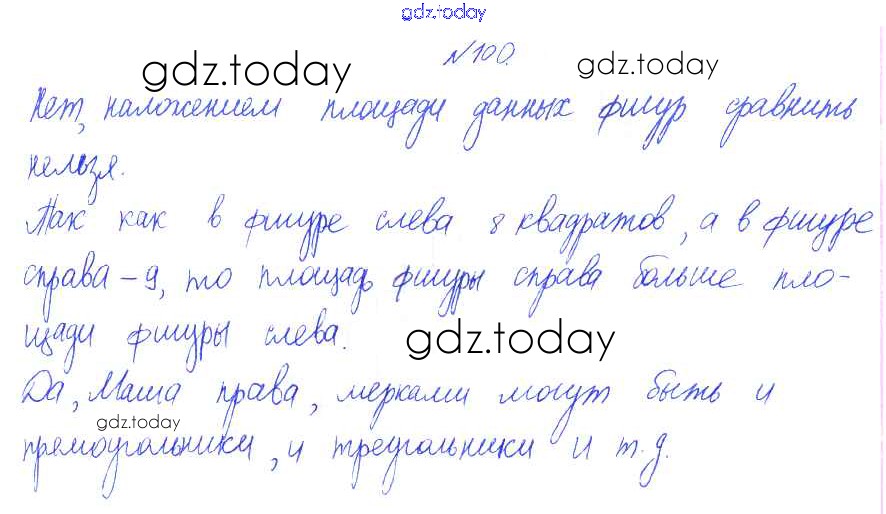 gdz.today
№100.
gdz.today gdz.today
Нет, наложением площади данных фигур сравнить
нельзя.
Так как в фигуре слева 8 квадратов, а в фигуре
справа – 9, то площадь фигуры справа больше пло-
щади фигуры слева.
gdz.today
Да, Маша права, мерками могут быть и
gdz.today
прямоугольники, и треугольники и т.д.